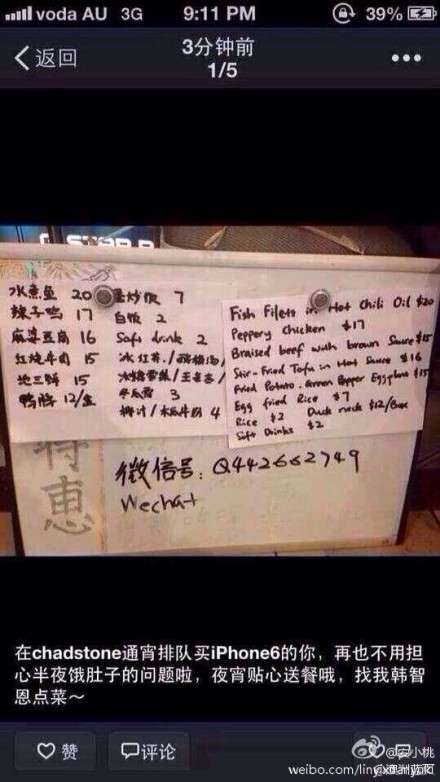 voda AU 3G 9:11 PM 39%
返回
3分钟前
1/5
水煮鱼 20
辣子鸡 17
麻婆豆腐 16
红烧牛肉 15
地三鲜 15
鸭脖 12/盒
蛋炒饭 7
白饭 2
Soft drink 2
冰红茶/酸梅汤/
冰糖雪梨/王老吉/
冬瓜露 3
椰汁/木瓜牛奶 4
Fish Filets in Hot Chili Oil $20
Peppery Chicken $17
Braised beef with brown Sauce $15
Stir-Fried Tofu in Hot Sauce $16
Fried Potato, Green Pepper Eggplant $15
Egg fried Rice $7
Rice $2 Duck neck $12/Box
Soft Drinks $2
特惠
微信号: Q442662749
Wechat
在chadstone通宵排队买iPhone6的你，再也不用担
心半夜饿肚子的问题啦，夜宵贴心送餐哦，找我韩智
恩点菜～
赞
评论